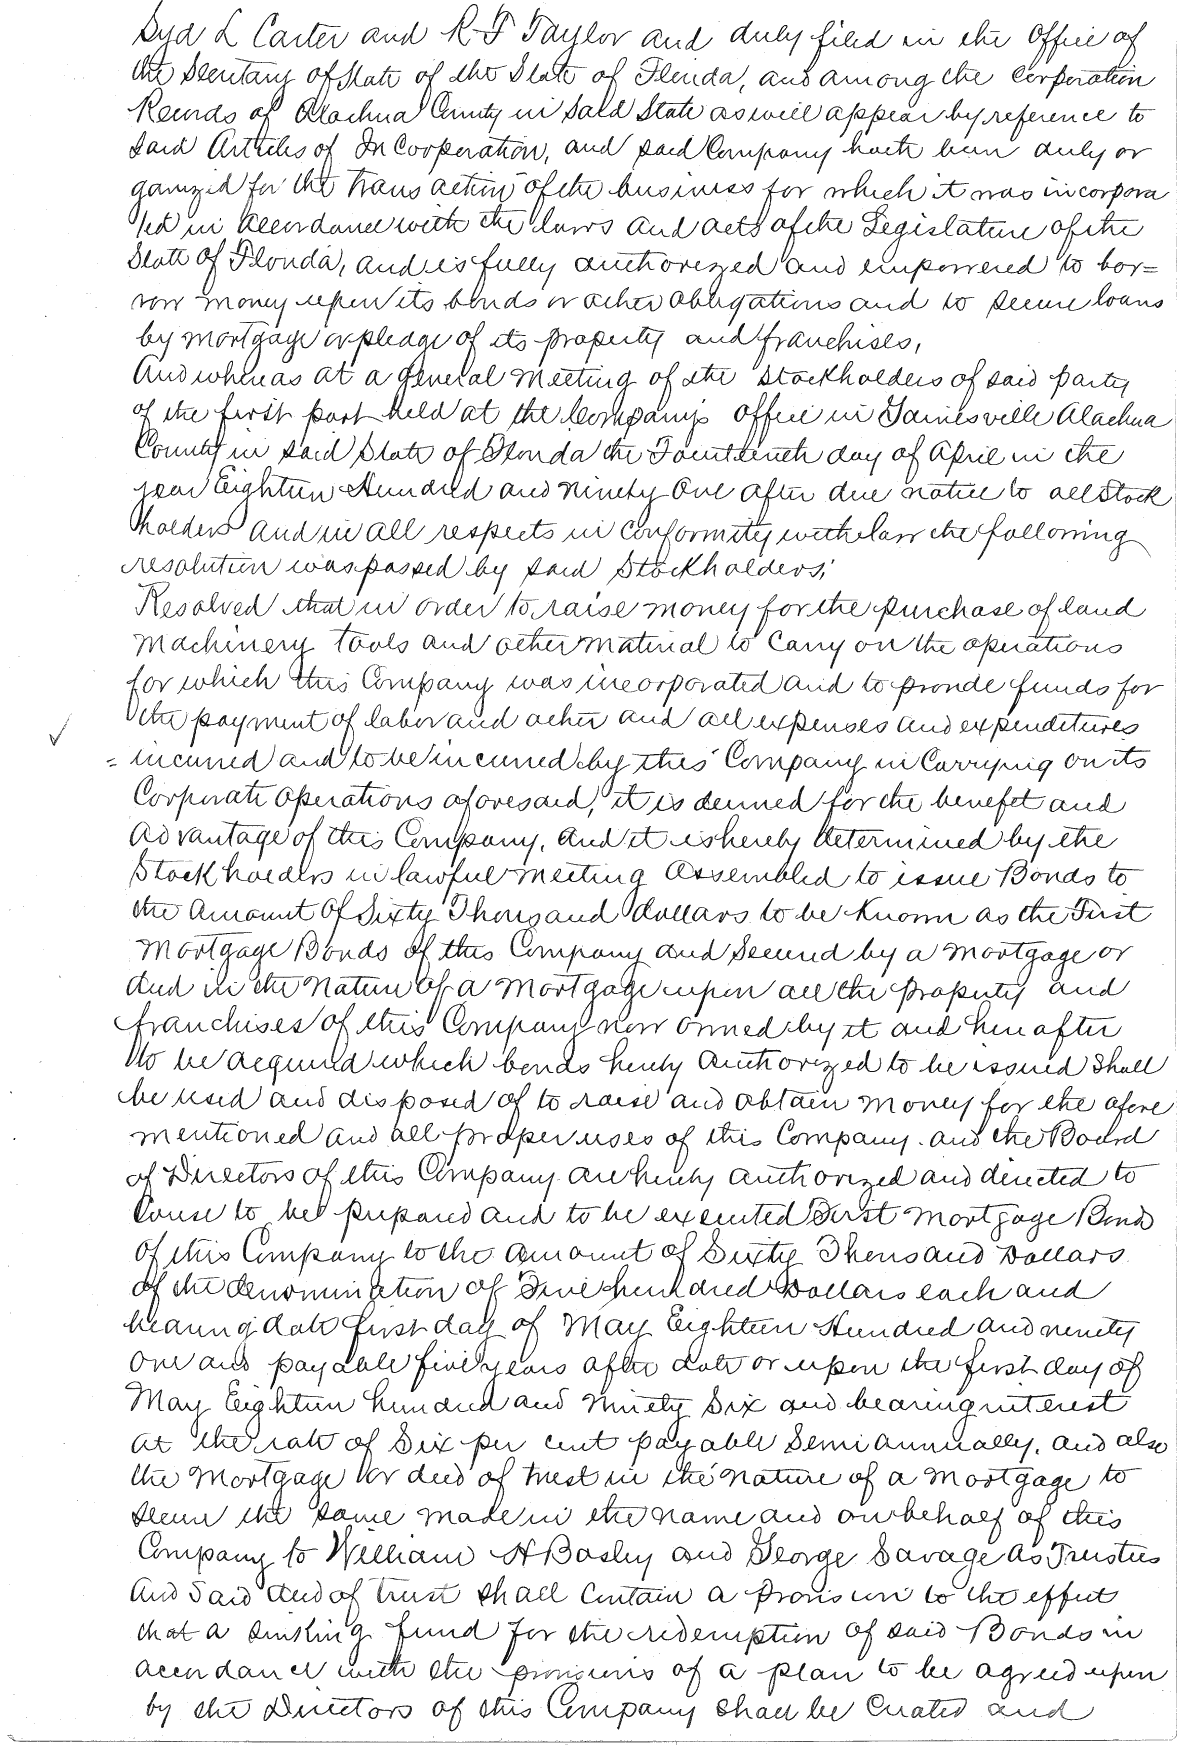 Syd L Carter and R F Taylor and duly filed in the Office of
the Secretary of State of the State of Florida, and among the Corporation
Records of Alachua County in said State as well appear by reference to
said Articles of InCooperation, and said Company hath been duly or
ganized for the transaction of the business for which it was incorpora
ted in accordance with the laws and acts of the Legislature of the
State of Florida, and is fully authorized and empowered to bor=
row money upon its bonds or other obligations and to secure loans
by mortgage or pledge of its property and franchises,
And whereas at a general meeting of the Stockholders of said party
of the first part held at the Company's office in Gainesville Alachua
County in said State of Florida the Fourteenth day of April in the
year Eighteen Hundred and Ninety One after due notice to all Stock
holders and in all respects in conformity with law the following
resolution was passed by said Stockholders;
Resolved that in order to raise money for the purchase of land
Machinery tools and other material to carry on the operations
for which this Company was incorporated and to provide funds for
the payment of labor and other and all expenses and expenditures
= incurred and to be incurred by this Company in Carrying on its
Corporate operations aforesaid, it is deemed for the benefet and
advantage of this Company, and it is hereby determined by the
Stockholders in lawful meeting assembled to issue Bonds to
the Amount of Sixty Thousand dollars to be known as the First
Mortgage Bonds of this Company and Secured by a mortgage or
deed in the nature of a Mortgage upon all the property and
franchises of this Company now owned by it and here after
to be acquired which bonds hereby authorized to be issued shall
be used and disposed of to raise and obtain money for the afore
mentioned and all proper uses of this Company. and the Board
of Directors of this Company are hereby authorized and directed to
Cause to be prepared and to be executed First Mortgage Bonds
of this Company to the amount of Sixty Thousand Dollars
of the denomination of Five hundred Dollars each and
bearing date first day of May Eighteen Hundred and ninety
one and payable five years after date or upon the first day of
May Eighteen hundred and Ninety Six and bearing interest
at the rate of Six per cent payable Semi annually, and also
the Mortgage or deed of trust in the nature of a Mortgage to
secure the same made in the name and on behalf of this
Company to William H Basley and George Savage as Trustees
And Said deed of trust shall Contain a provision to the effect
that a sinking fund for the redemption of said Bonds in
accordance with the provisions of a plan to be agreed upon
by the Directors of this Company shall be Created and